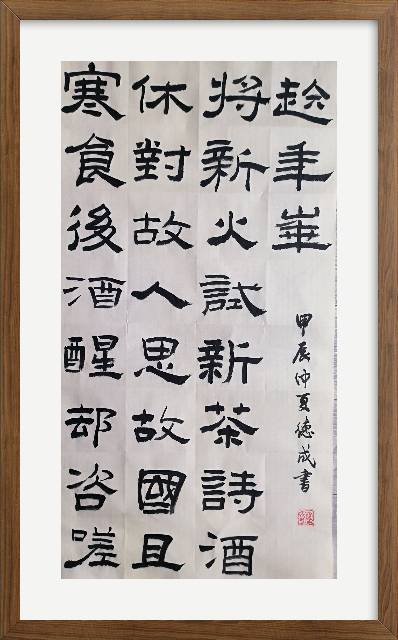 寒食後酒醒却咨嗟
休對故人思故國且
將新火試新茶詩酒
趁年華
甲辰仲夏德成書